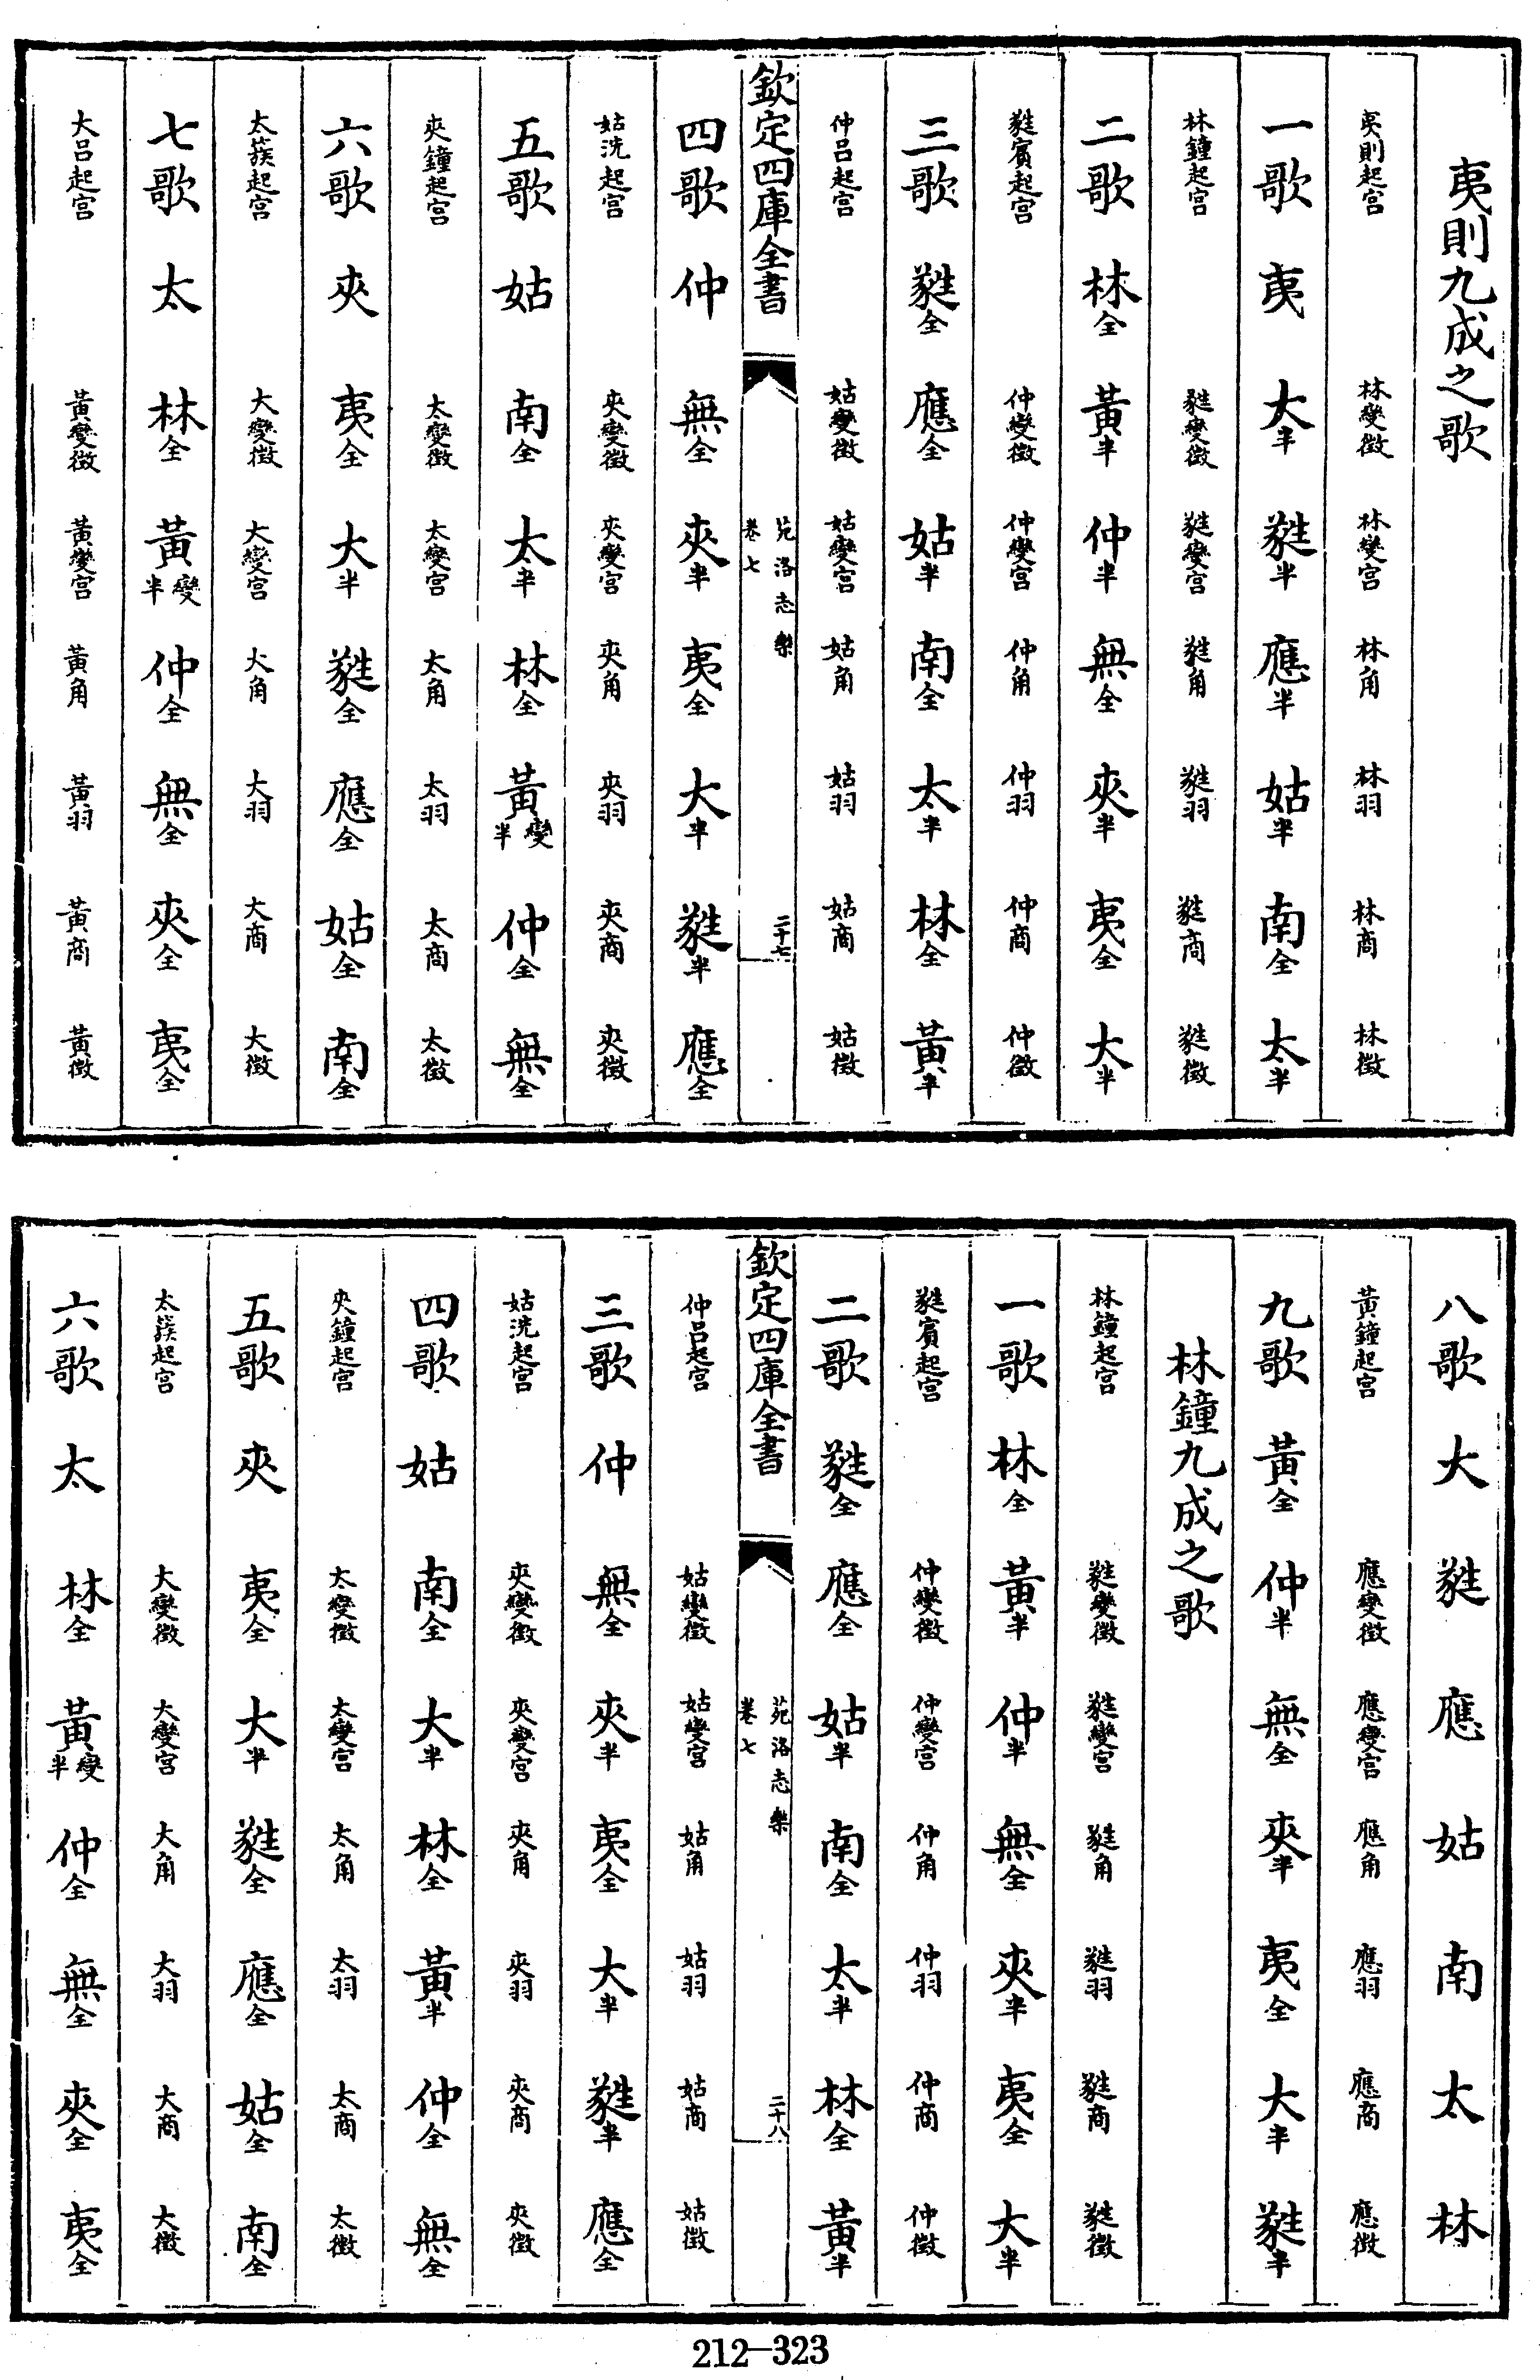 夷則九成之歌
夷則起宮 林變徵 林變宮 林角 林羽 林商 林徵
一歌 夷 大半 蕤半 應半 姑半 南全 太半
林鐘起宮 蕤變徵 蕤變宮 蕤角 蕤羽 蕤商 蕤徵
二歌 林全 黃半 仲半 無全 夾半 夷全 大半
蕤賓起宮 仲變徵 仲變宮 仲角 仲羽 仲商 仲徵
三歌 蕤全 應全 姑半 南全 太半 林全 黃半
仲呂起宮 姑變徵 姑變宮 姑角 姑羽 姑商 姑徵
欽定四庫全書 苑洛志樂 卷七 二十七
四歌 仲 無全 夾半 夷全 大半 蕤半 應全
姑洗起宮 夾變徵 夾變宮 夾角 夾羽 夾商 夾徵
五歌 姑 南全 太半 林全 黃變半 仲全 無全
夾鐘起宮 太變徵 太變宮 太角 太羽 太商 太徵
六歌 夾 夷全 大半 蕤全 應全 姑全 南全
太蔟起宮 大變徵 大變宮 大角 大羽 大商 大徵
七歌 太 林全 黃變半 仲全 無全 夾全 夷全
大呂起宮 黃變徵 黃變宮 黃角 黃羽 黃商 黃徵
八歌 大 蕤 應 姑 南 太 林
黃鐘起宮 應變徵 應變宮 應角 應羽 應商 應徵
九歌 黃全 仲半 無全 夾半 夷全 大半 蕤半
林鐘九成之歌
林鐘起宮 蕤變徵 蕤變宮 蕤角 蕤羽 蕤商 蕤徵
一歌 林全 黃半 仲半 無全 夾半 夷全 大半
蕤賓起宮 仲變徵 仲變宮 仲角 仲羽 仲商 仲徵
二歌 蕤全 應全 姑半 南全 太半 林全 黃半
欽定四庫全書 苑洛志樂 卷七 二十八
仲呂起宮 姑變徵 姑變宮 姑角 姑羽 姑商 姑徵
三歌 仲 無全 夾半 夷全 大半 蕤半 應全
姑洗起宮 夾變徵 夾變宮 夾角 夾羽 夾商 夾徵
四歌 姑 南全 大半 林全 黃半 仲全 無全
夾鐘起宮 太變徵 太變宮 太角 太羽 太商 太徵
五歌 夾 夷全 大半 蕤全 應全 姑全 南全
太蔟起宮 大變徵 大變宮 大角 大羽 大商 大徵
六歌 太 林全 黃變半 仲全 無全 夾全 夷全
212-323